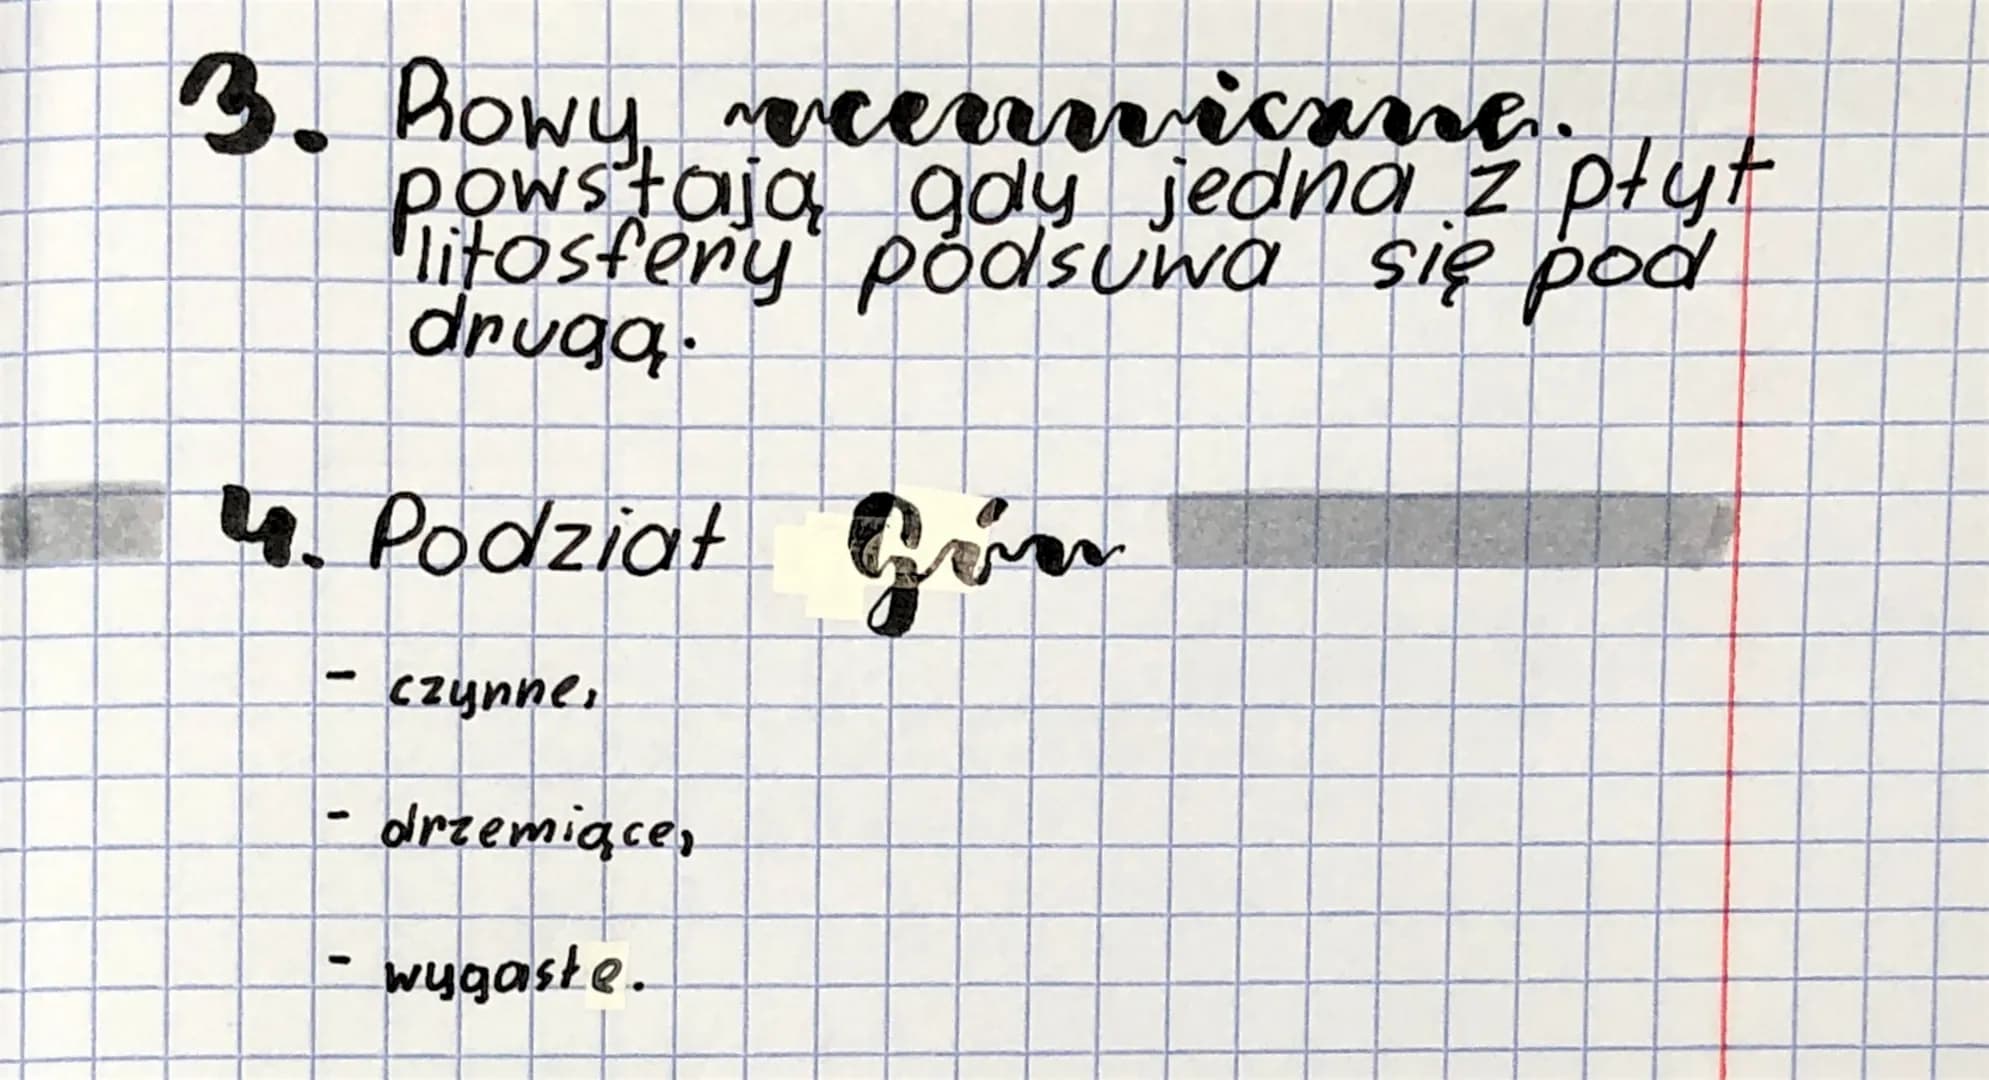 3. Rowy oceaniczne.
powstają gdy jedna z płyt
litosfery podsuwa się pod
drugą.
4. Podział Gór
- czynne,
- drzemiące,
- wygasłe.